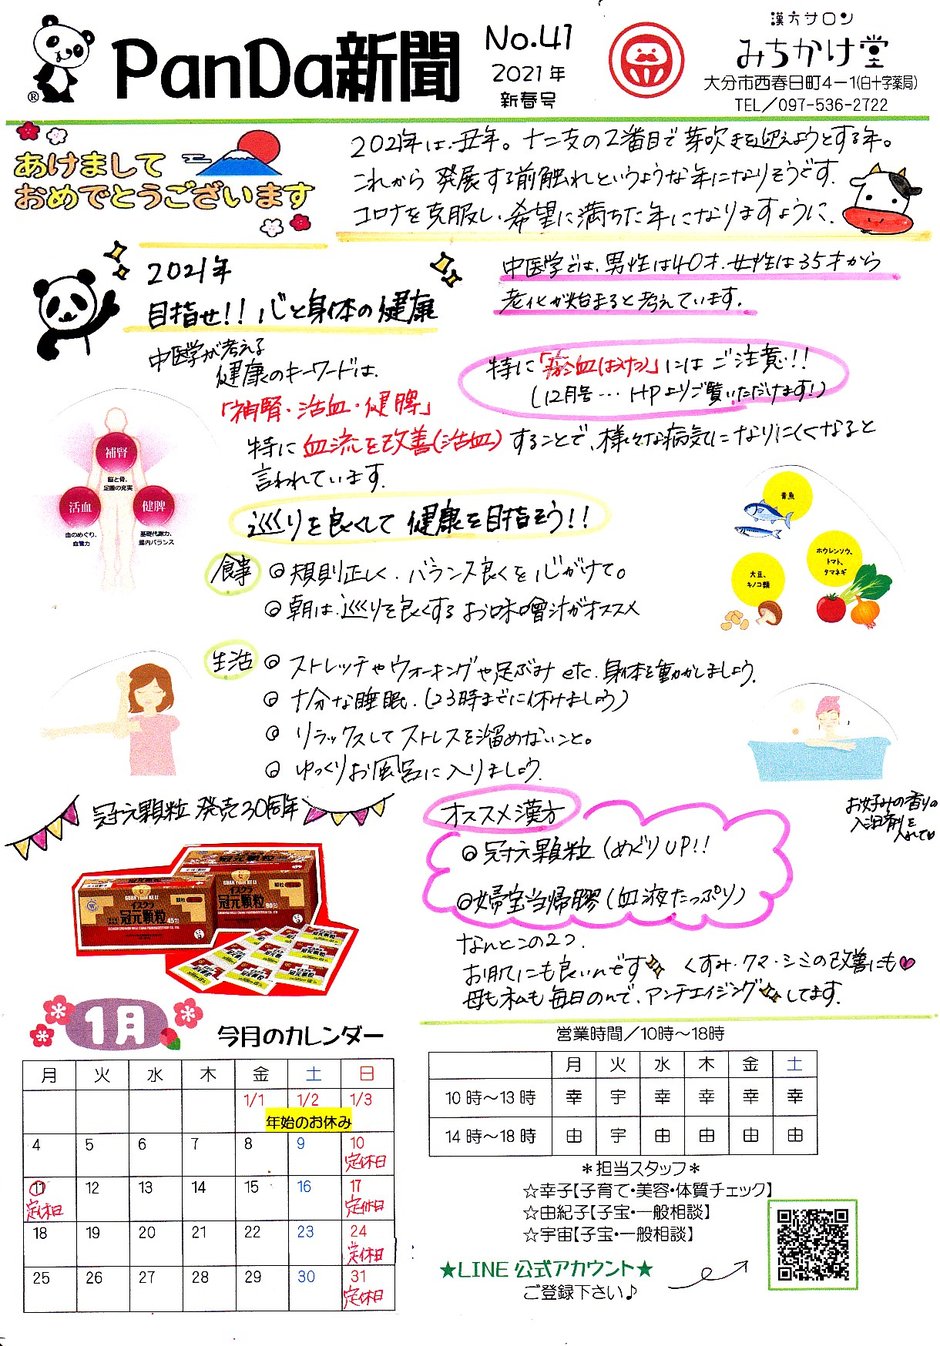 PanDa新聞
No.41
2021年
新春号
漢方サロン
みちかけ堂
大分市西春日町4-1(白十字薬局)
TEL/097-536-2722
®
あけまして
おめでとうございます
2021年は、丑年。十二支の2番目で芽吹きを迎えようとする年。
これから発展する前触れというような年になりそうです。
コロナを克服し、希望に満ちた年になりますように。
2021年
目指せ!!心と身体の健康
中医学では、男性は40才、女性は35才から
老化が始まると考えています。
中医学が考える
健康のキーワードは、
「補腎・活血・健脾」
特に「瘀血(おけつ)」にはご注意!!
(12月号…HPよりご覧いただけます!)
特に血流を改善(活血)することで、様々な病気になりにくくなると
言われています。
補腎
脳と骨、
足腰の充実
活血
血のめぐり、
血管力
健脾
基礎代謝力、
腸内バランス
巡りを良くして健康を目指そう!!
青魚
大豆、
キノコ類
ホウレンソウ、
トマト、
タマネギ
食事
◎規則正しく、バランス良くを心がけて。
◎朝は巡りを良くするお味噌汁がオススメ
生活
◎ストレッチやウォーキングや足ぶみetc.身体を動かしましょう。
◎十分な睡眠。(23時までに休みましょう)
◎リラックスしてストレスを溜めないこと。
◎ゆっくりお風呂に入りましょう。
お好みの香りの
入浴剤を
入れて♡
冠元顆粒 発売30周年
イスクラ
冠元顆粒
45包
冠元顆粒
90包
オススメ漢方
◎冠元顆粒(めぐりUP!!
◎婦宝当帰膠(血液たっぷり)
なんとこの2つ、
お肌にも良いんです くすみ・クマ・シミの改善にも♥
母も私も毎日のんで、アンチエイジングしてます。
1月
今月のカレンダー
月 火 水 木 金 土 日
1/1 1/2 1/3
年始のお休み
4 5 6 7 8 9 10
定休日
11 12 13 14 15 16 17
定休日 定休日
18 19 20 21 22 23 24
定休日
25 26 27 28 29 30 31
定休日
営業時間/10時~18時
月 火 水 木 金 土
10時~13時 幸 宇 幸 幸 幸 幸
14時~18時 由 宇 由 由 由 由
*担当スタッフ*
☆幸子【子育て・美容・体質チェック】
☆由紀子【子宝・一般相談】
☆宇宙【子宝・一般相談】
★LINE公式アカウント★
ご登録下さい♪